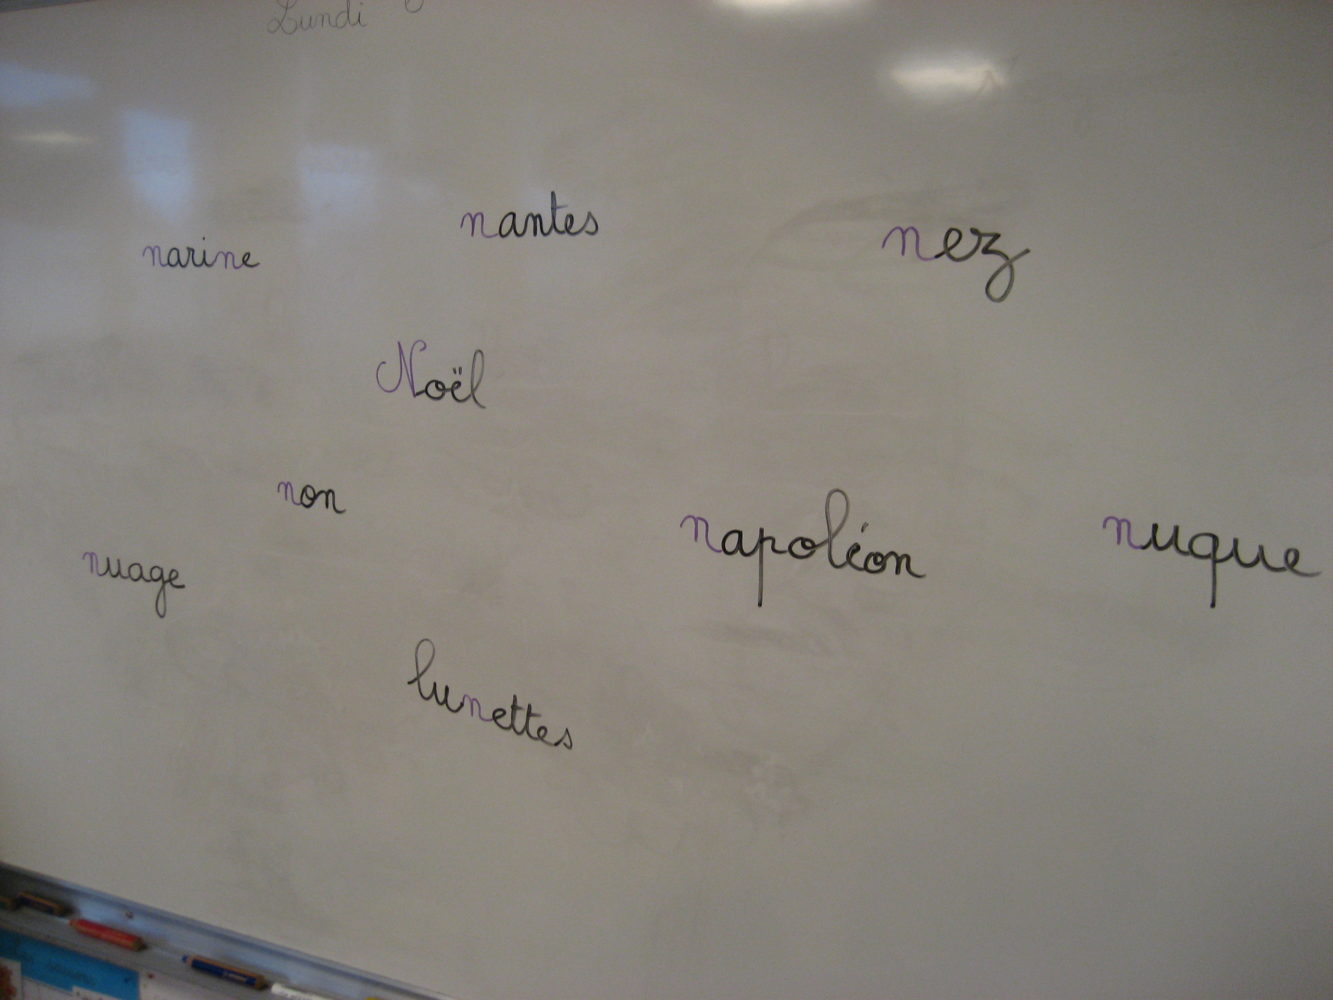 Lundi
narine
nantes
nez
Noël
non
napoléon
nuque
nuage
lunettes